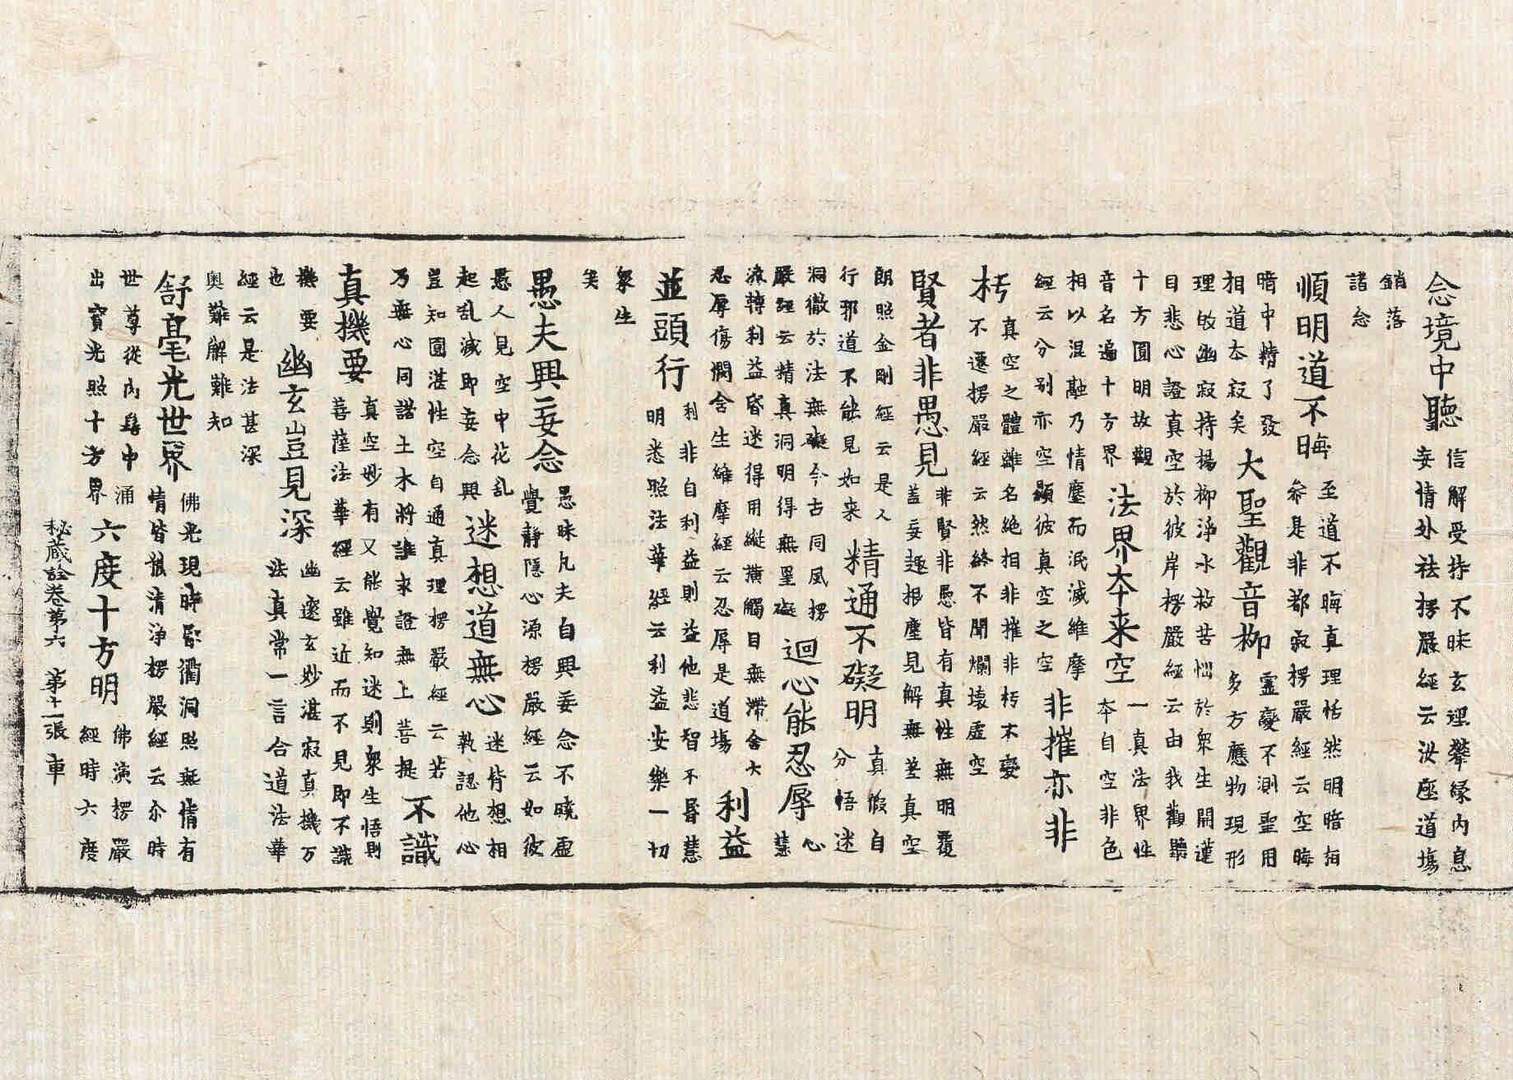 念境中聽
信解受持不昧玄理攀緣内息
妄情外祛楞嚴經云汝座道塲
銷落
諸念
順明道不晦
至道不晦真理恬然明暗有
參是非都寂楞嚴經云空晦
暗中精了發
相道夲寂矣
大聖觀音柳
靈變不測聖用
多方應物現形
理敀幽寂持楊柳淨水救苦惱於衆生開蓮
目悲心證真空於彼岸楞嚴經云由我觀聽
十方圓明故觀
音名遍十方界
法界夲来空
一真法界性
夲自空非色
相以混融乃情塵而泯滅維摩
經云分别亦空顯彼真空之空
非摧亦非
朽
真空之體離名絶相非摧非朽不變
不遷楞嚴經云然終不聞爛壊虚空
賢者非愚見
非賢非愚皆有真性無明覆
盖妄趣根塵見解無差真空
朗照金剛經云是人
行邪道不能見如来
精通不礙明
真假自
分悟迷
洞徹於法無礙今古同風楞
嚴經云精真洞明得無罣礙
迴心能忍辱
心
慧
流轉利益昏迷得用縱撗觸目無滯含大
忍辱傷憫含生維摩經云忍辱是道塲
利益
並頭行
利非自利益則益他悲智不昬慧
明悉照法華經云利益安樂一切
衆生
矣
愚夫興妄念
愚昧凡夫自興妄念不曉虚
覺静隱心源楞嚴經云如彼
愚人見空中花乱
起乱滅即妄念興
迷想道無心
迷背想相
執認他心
豈知圓湛性空自通真理楞嚴經云若
乃無心同諸土木將誰求證無上菩提
不識
真機要
真空妙有又能覺知迷則衆生悟則
菩薩法華經云雖近而不見即不識
機要
也
幽玄豈見深
幽邃玄妙湛寂真機万
法真常一言合道法華
經云是法甚深
奥難解難知
舒毫光世界
佛光現時聚衢洞照無情有
情皆報清淨楞嚴經云尒時
世尊從肉髻中涌
出寶光照十方界
六度十方明
佛演楞嚴
經時六度
秘蔵詮卷第六 第十一張 車